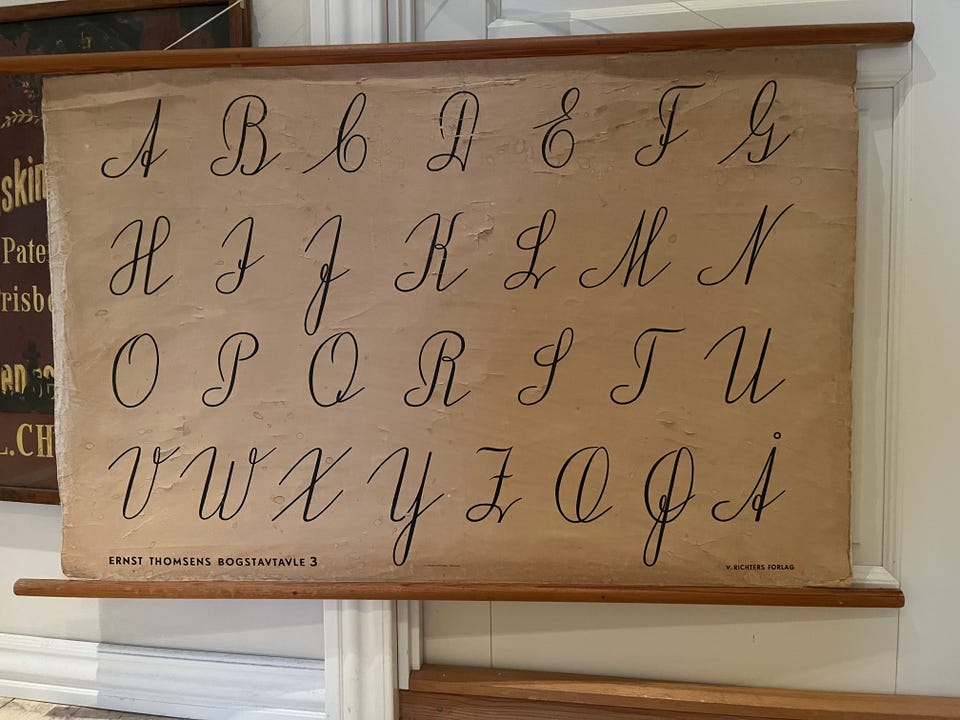 A B C D E F G
H I J K L M N
O P Q R S T U
V W X Y Z Æ Ø Å
ERNST THOMSENS BOGSTAVTAVLE 3
V. RICHTERS FORLAG
skin
Pate
risb
L.CH